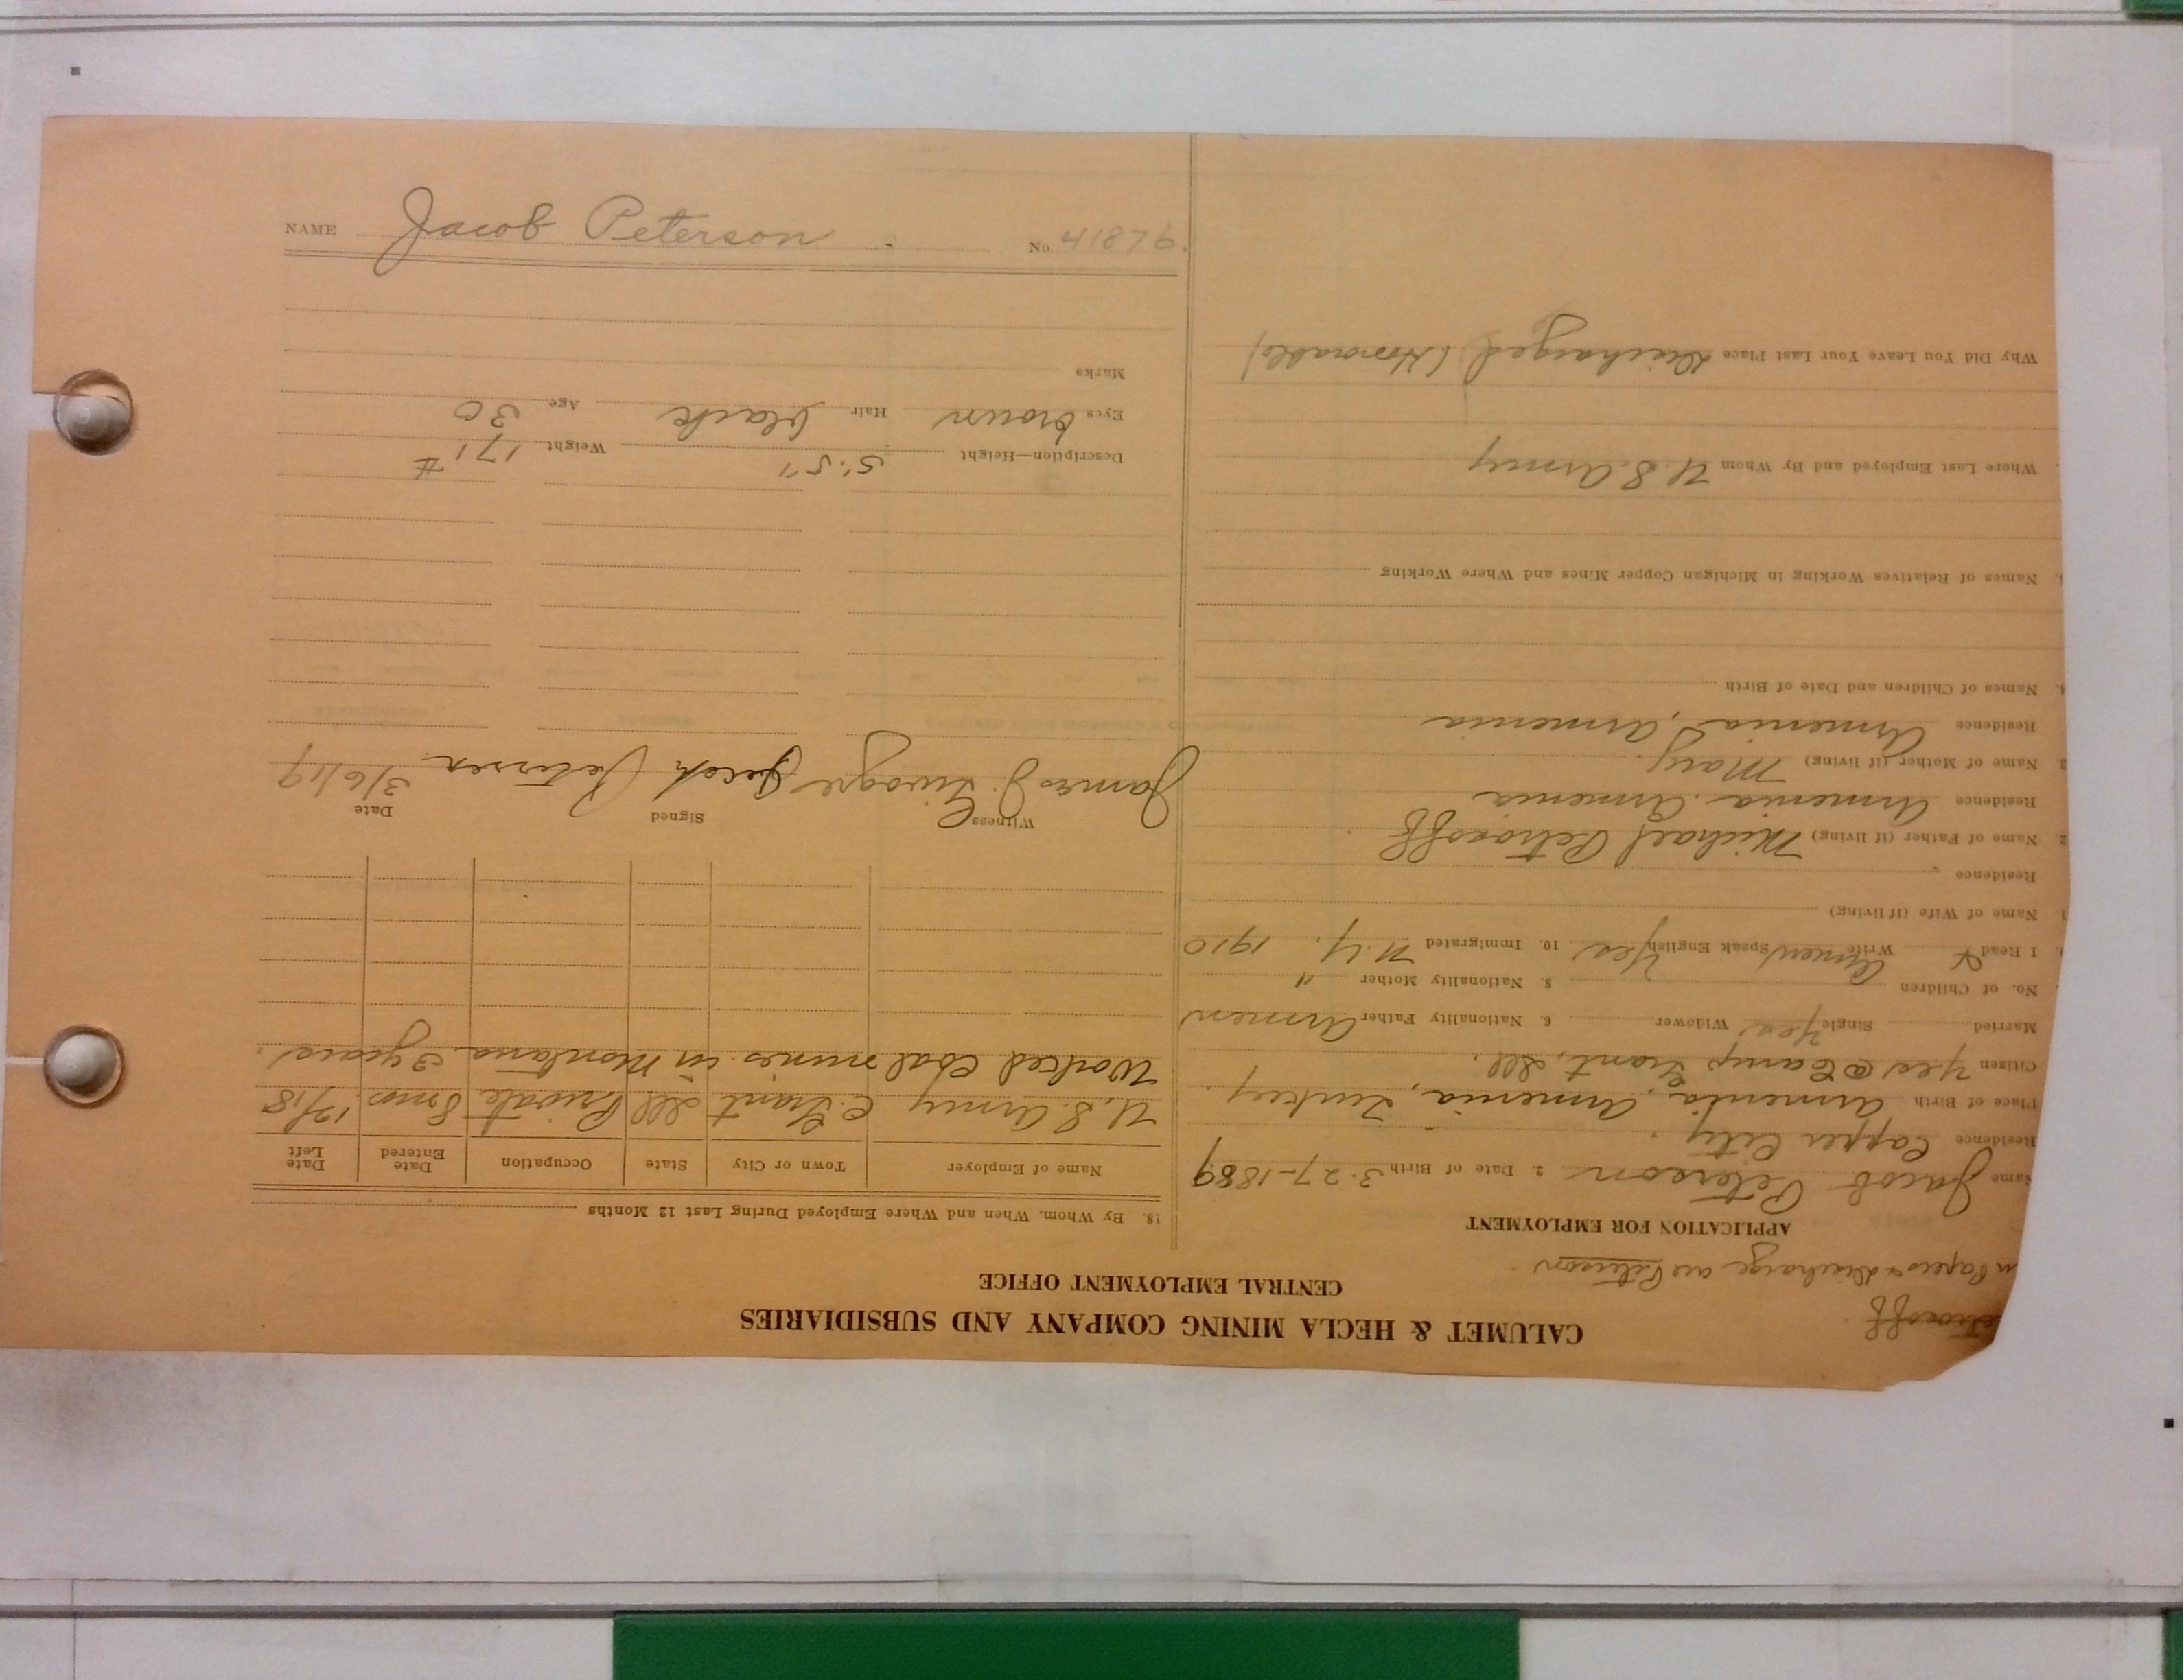 NAME Jacob Peterson. No. 41876.
CALUMET & HECLA MINING COMPANY AND SUBSIDIARIES
CENTRAL EMPLOYMENT OFFICE
etrosoff
n Papers & discharge are Peterson.
APPLICATION FOR EMPLOYMENT
Name Jacob Peterson 2. Date of Birth 3-27-1889
Residence Copper City.
Place of Birth Armenia, Armenia, Turkey.
Citizen Yes @ Camp Grant, Ill.
Married Single Yes Widower 6. Nationality Father Armen
No. of Children 8. Nationality Mother "
9. I Read & Write Armen Speak English Yes 10. Immigrated N.Y. 1910
1. Name of Wife (if living)
Residence
2. Name of Father (if living) Michael Petrosoff
Residence Armenia. Armenia
3. Name of Mother (if living) Mary.
Residence Armenia, Armenia
4. Names of Children and Date of Birth
5. Names of Relatives Working in Michigan Copper Mines and Where Working
Where Last Employed and By Whom U.S. Army
Why Did You Leave Your Last Place Discharged (Honorable)
18. By Whom, When and Where Employed During Last 12 Months
Name of Employer Town or City State Occupation Date Entered Date Left
U.S. Army C. Grant Ill Private 8 mos. 12/18
Worked Coal mines in Montana 3 years.
Witness Signed Date
James J. Jacob Peterson 3/6/19
Description—Height 5'.5" Weight 171#
Eyes brown Hair black Age 30
Marks